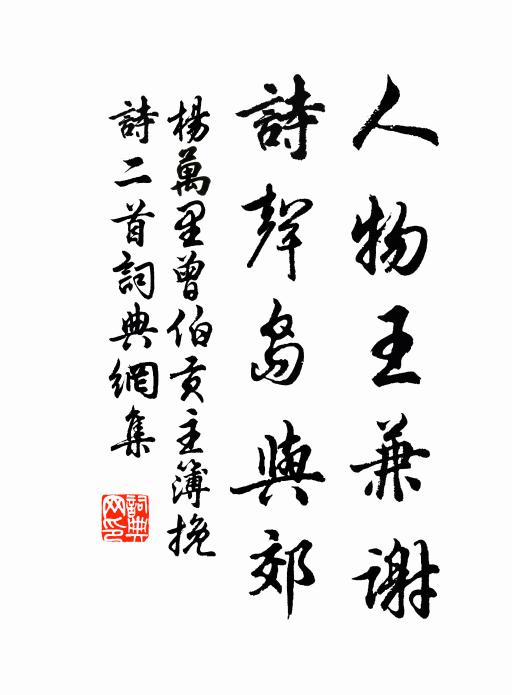 人物王兼謝
詩聲島與郊
楊萬里曾伯貢主簿挽
詩二首詞典網集
詞典
网印